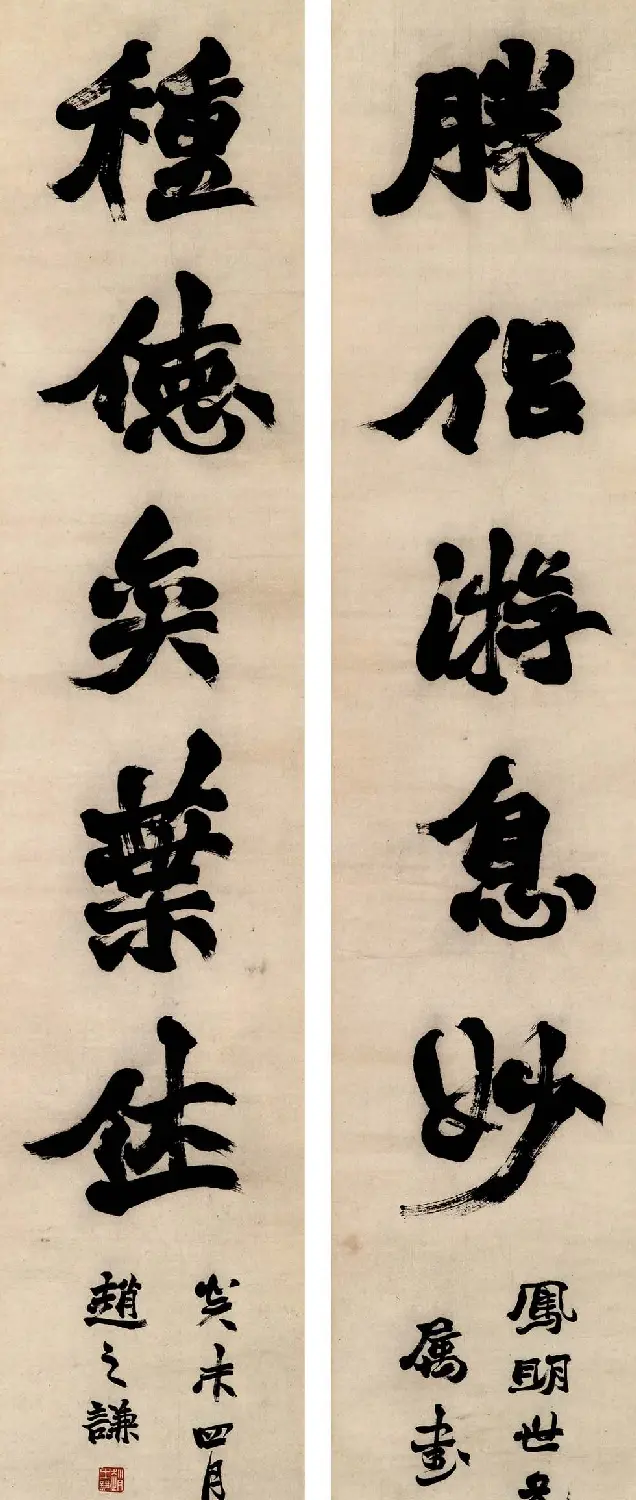 勝侶游息妙
鳳明世
屬書
種德奕葉佳
癸未四月
趙之謙